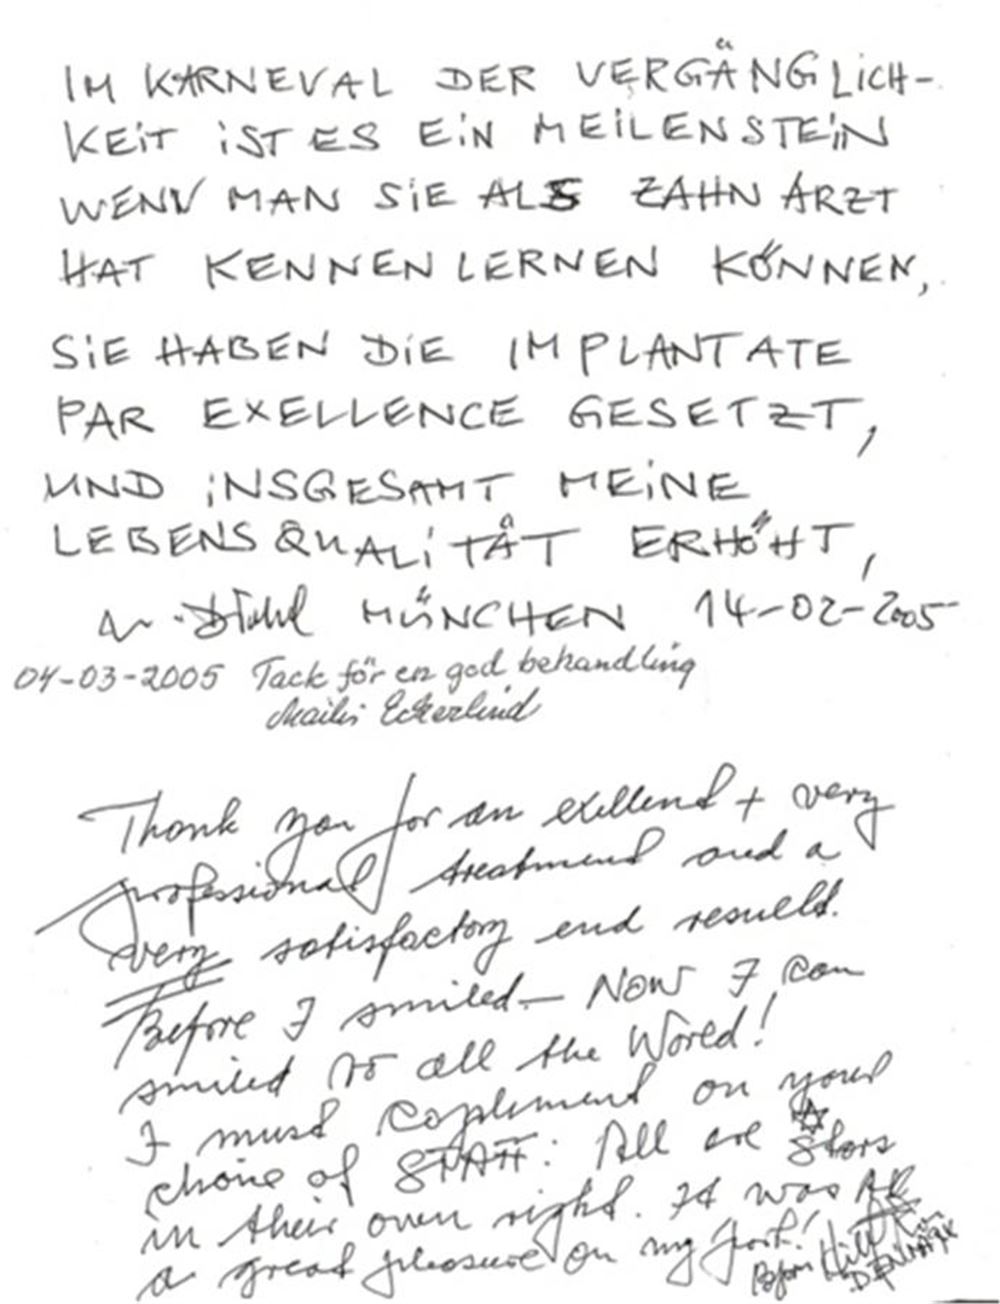 IM KARNEVAL DER VERGÄNGLICH-
KEIT IST ES EIN MEILENSTEIN
WENN MAN SIE ALS ZAHN ARZT
HAT KENNEN LERNEN KÖNNEN,
SIE HABEN DIE IMPLANTATE
PAR EXELLENCE GESETZT,
UND INSGESAMT MEINE
LEBENSQUALITÄT ERHÖHT,
MÜNCHEN 14-02-2005
04-03-2005 Tack för en god behandling
Eckerlind
Thank you for an exellend + very
professional treatmend and a
very satisfactory end resueld.
Before I smiled - NOW I can
smiled to all the World!
I musd coplemend on your
choise of STAFF: All are Stars
in their own right. It was
a great pleasure on my part!